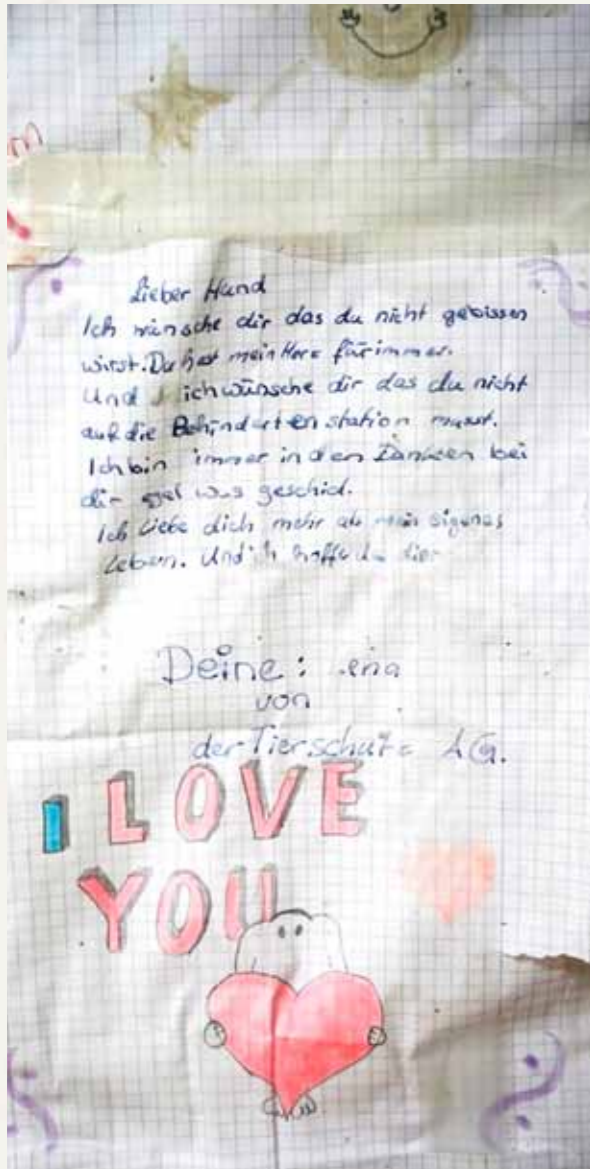 Lieber Hund
Ich wünsche dir das du nicht gebissen
wirst. Du hast mein Herz für immer.
Und ich wünsche dir das du nicht
auf die Behinderten station musst.
Ich bin immer in den Dankeen bei
dir egal was geschid.
Ich liebe dich mehr als mein eigenes
Leben. Und ich hoffe du
Deine: ena
von
der Tierschutz AG.
I LOVE
YOU